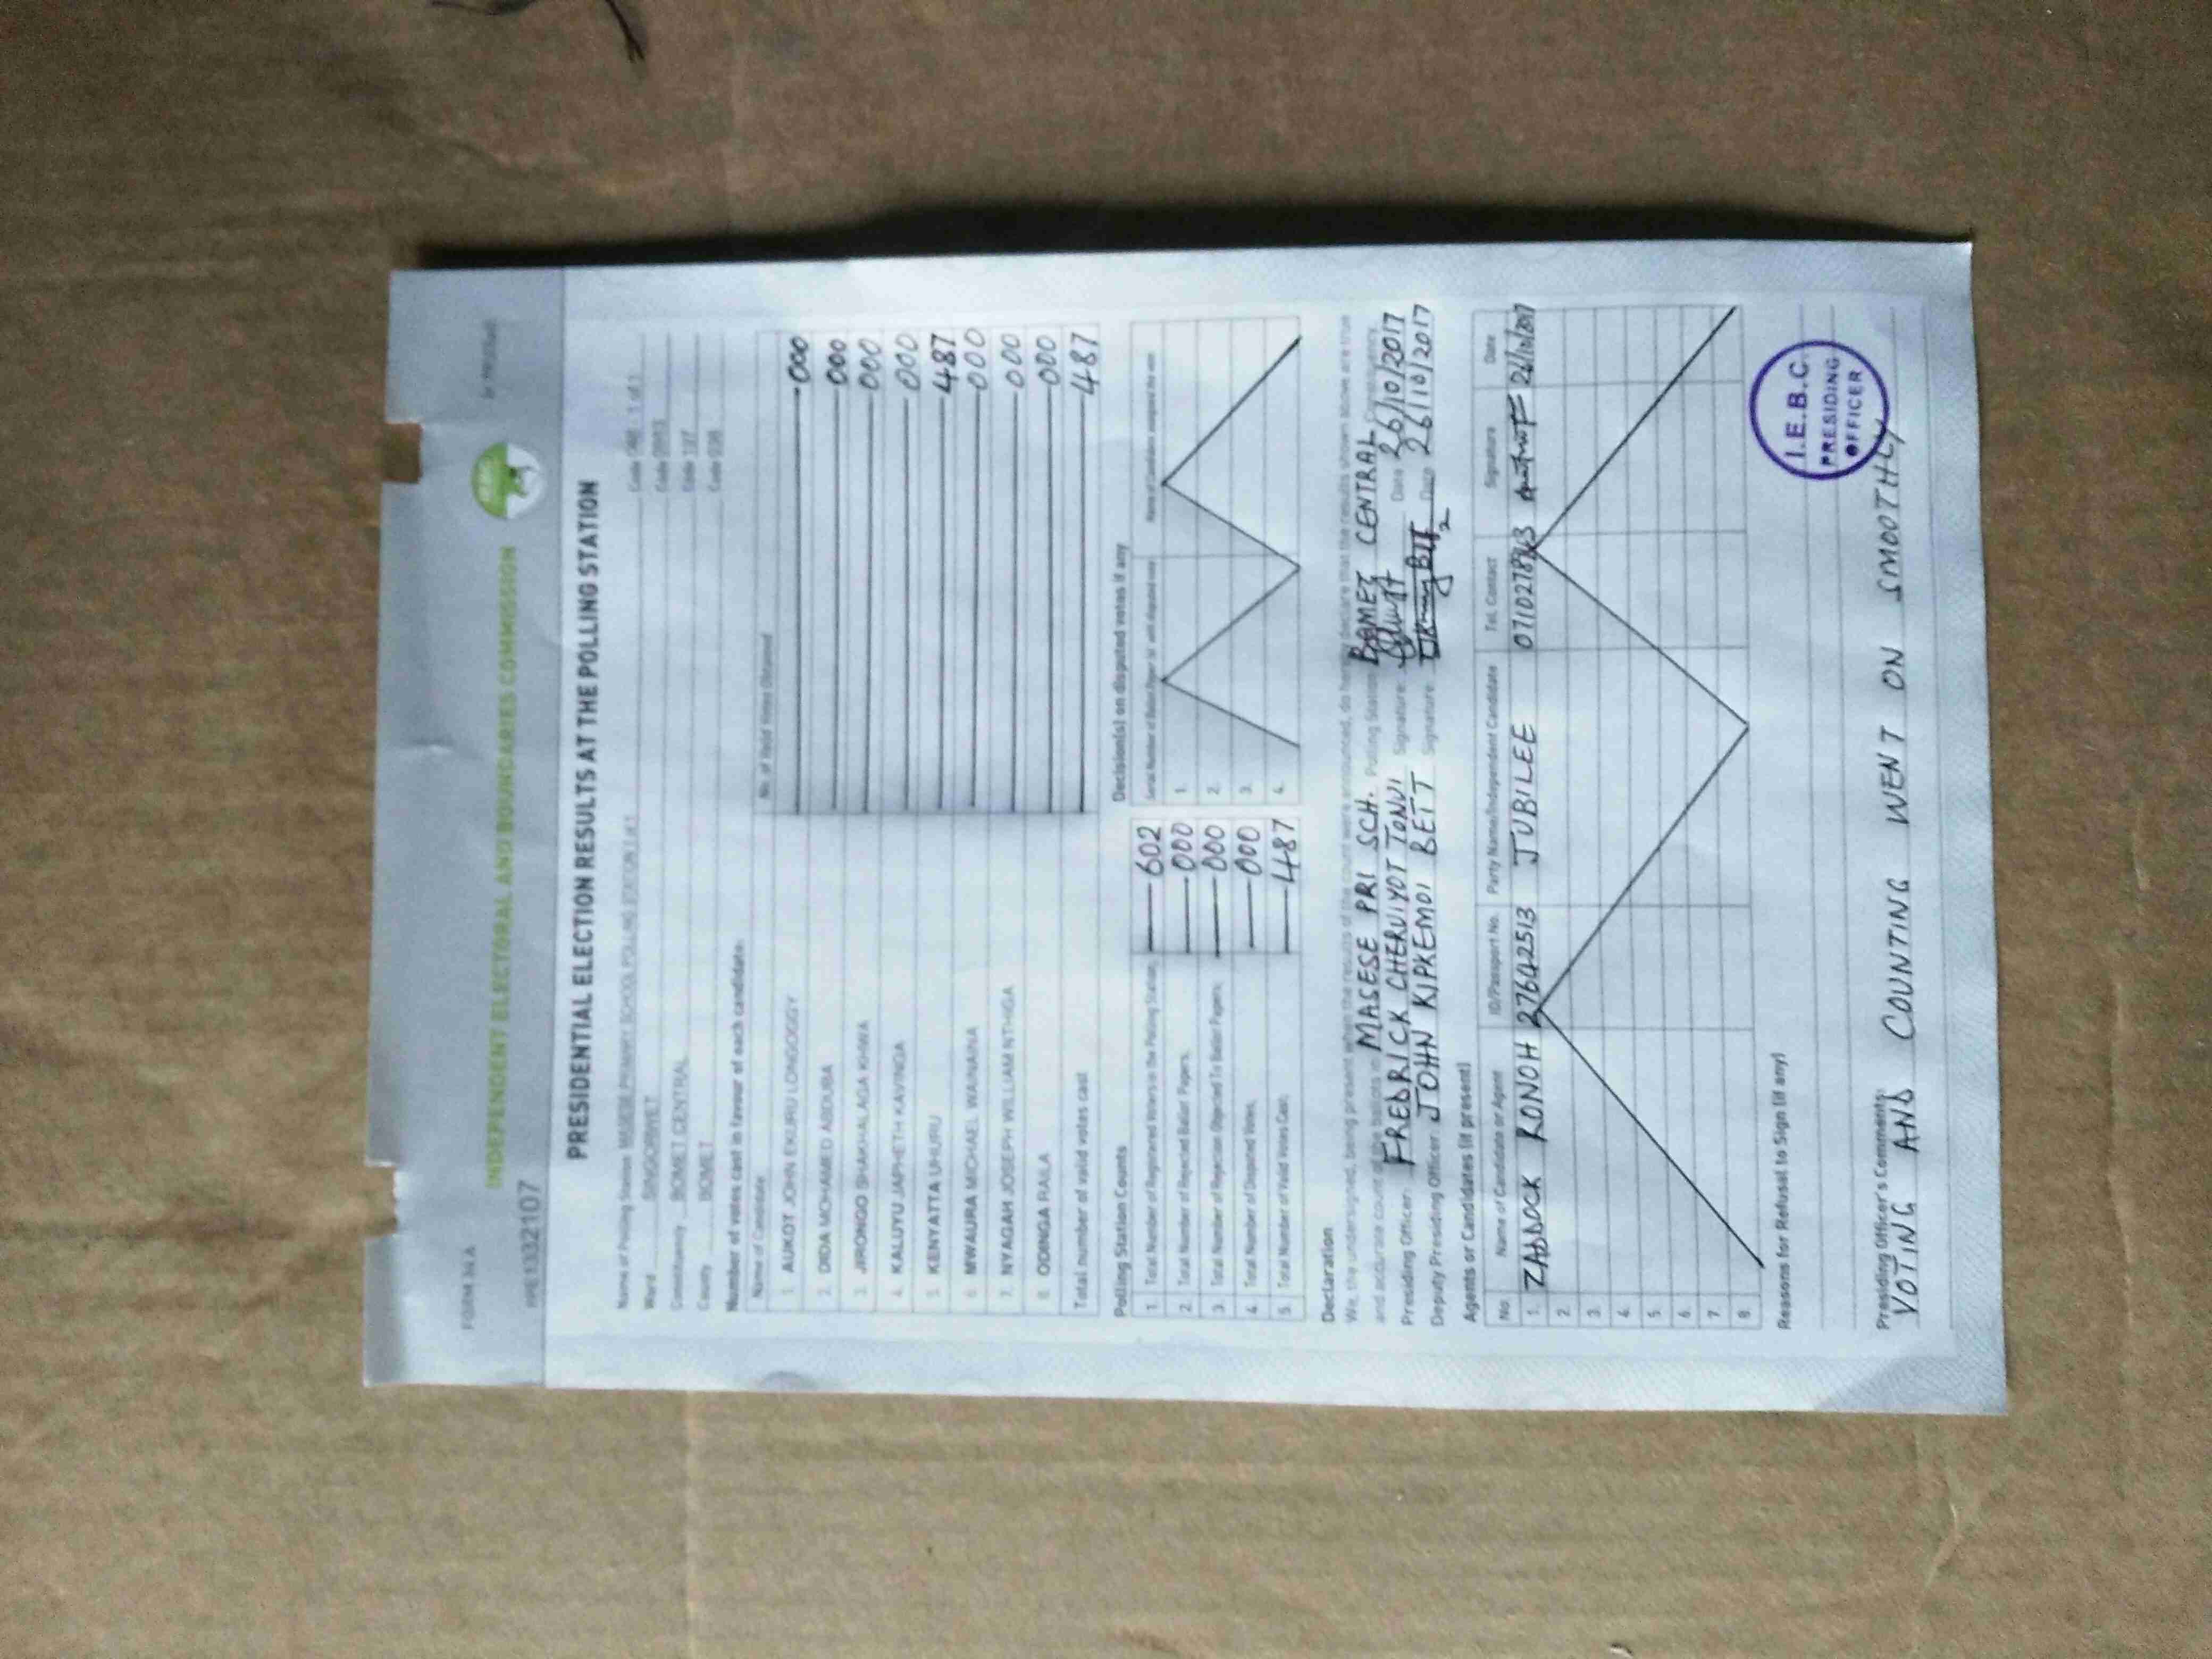 FORM 34A
INDEPENDENT ELECTORAL AND BOUNDARIES COMMISSION
PRESIDENTIAL ELECTION RESULTS AT THE POLLING STATION
Name of Polling Station MASESE PRIMARY SCHOOL POLLING STATION 1 of 1 Code 1 of 1
Ward SINGORWET Code
Constituency BOMET CENTRAL Code 197
County BOMET Code 036
Number of votes cast in favour of each candidate:
Name of Candidate No. of Valid Votes Obtained
1. AUKOT JOHN EKURU LONGOGGY 000
2. DIDA MOHAMED ABDUBA 000
3. JIRONGO SHAKHALAGA KHWA 000
4. KALUYU JAPHETH KAVINGA 000
5. KENYATTA UHURU 487
6. MWAURA MICHAEL WAINAINA 000
7. NYAGAH JOSEPH WILLIAM NTHIGA 000
8. ODINGA RAILA 000
Total number of valid votes cast 487
Polling Station Counts
1. Total Number of Registered Voters in the Polling Station 602
2. Total Number of Rejected Ballot Papers. 000
3. Total Number of Rejection Objected To Ballot Papers. 000
4. Total Number of Disputed Votes. 000
5. Total Number of Valid Votes Cast. 487
Decision(s) on disputed votes if any
1.
2.
3.
4.
Declaration
We, the undersigned, being present when the results of the count were announced, do hereby declare that the results shown above are true
and accurate count of the ballots in MASESE PRI SCH. Polling Station BOMET CENTRAL Constituency
Presiding Officer: FREDRICK CHERUIYOT TONUI Signature: Date 26/10/2017
Deputy Presiding Officer: JOHN KIPKEMOI BETT Signature: Date 26/10/2017
Agents or Candidates (if present)
No. Name of Candidate or Agent ID/Passport No. Party Name/Independent Candidate Tel. Contact Signature Date
1. ZADDOCK RONOH JUBILEE 26/10/2017
2.
3.
4.
5.
6.
7.
8.
Reasons for Refusal to Sign (if any)
I.E.B.C.
PRESIDING
OFFICER
Presiding Officer's Comments:
VOTING AND COUNTING WENT ON SMOOTHLY